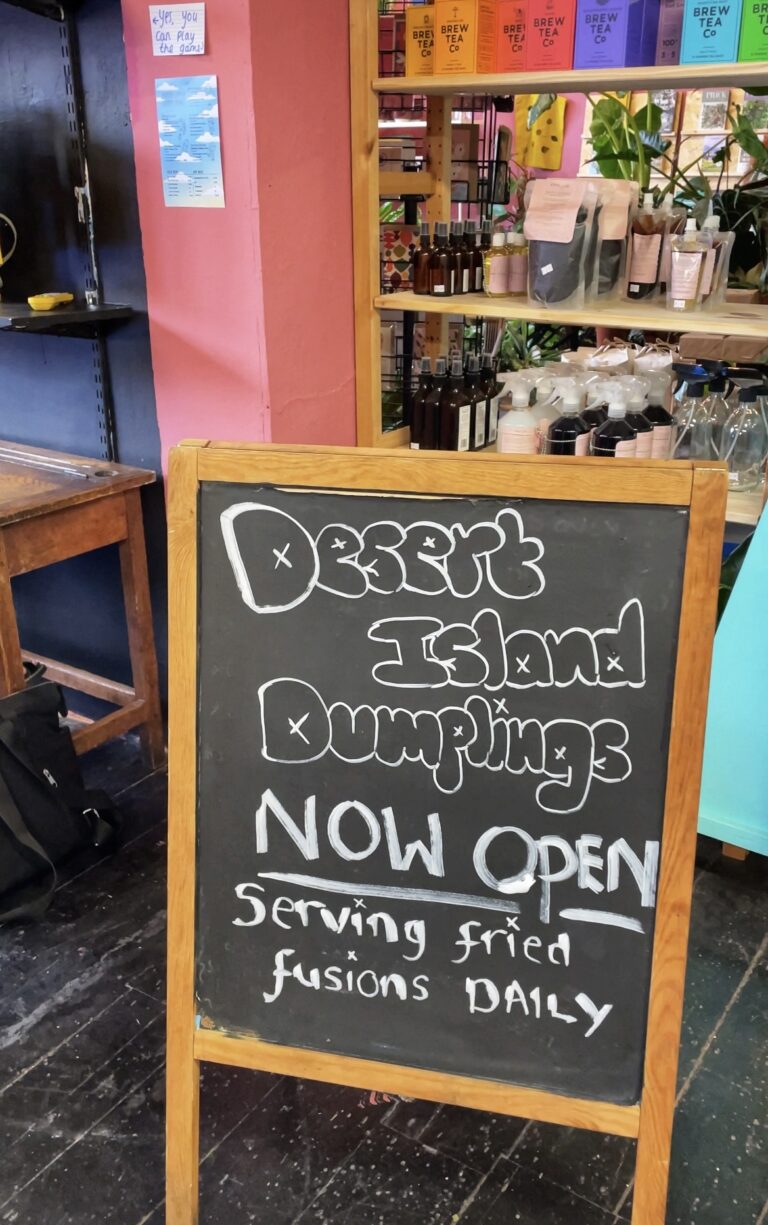 ←Yes, you
can play
the game!
BREW
TEA
Co
BREW
TEA
Co
BREW
TEA
Co
BREW
TEA
Co
BREW
TEA
Co
BREW
TEA
Co
BREW
TEA
Co
Desert
Island
Dumplings
NOW OPEN
Serving fried
fusions DAILY